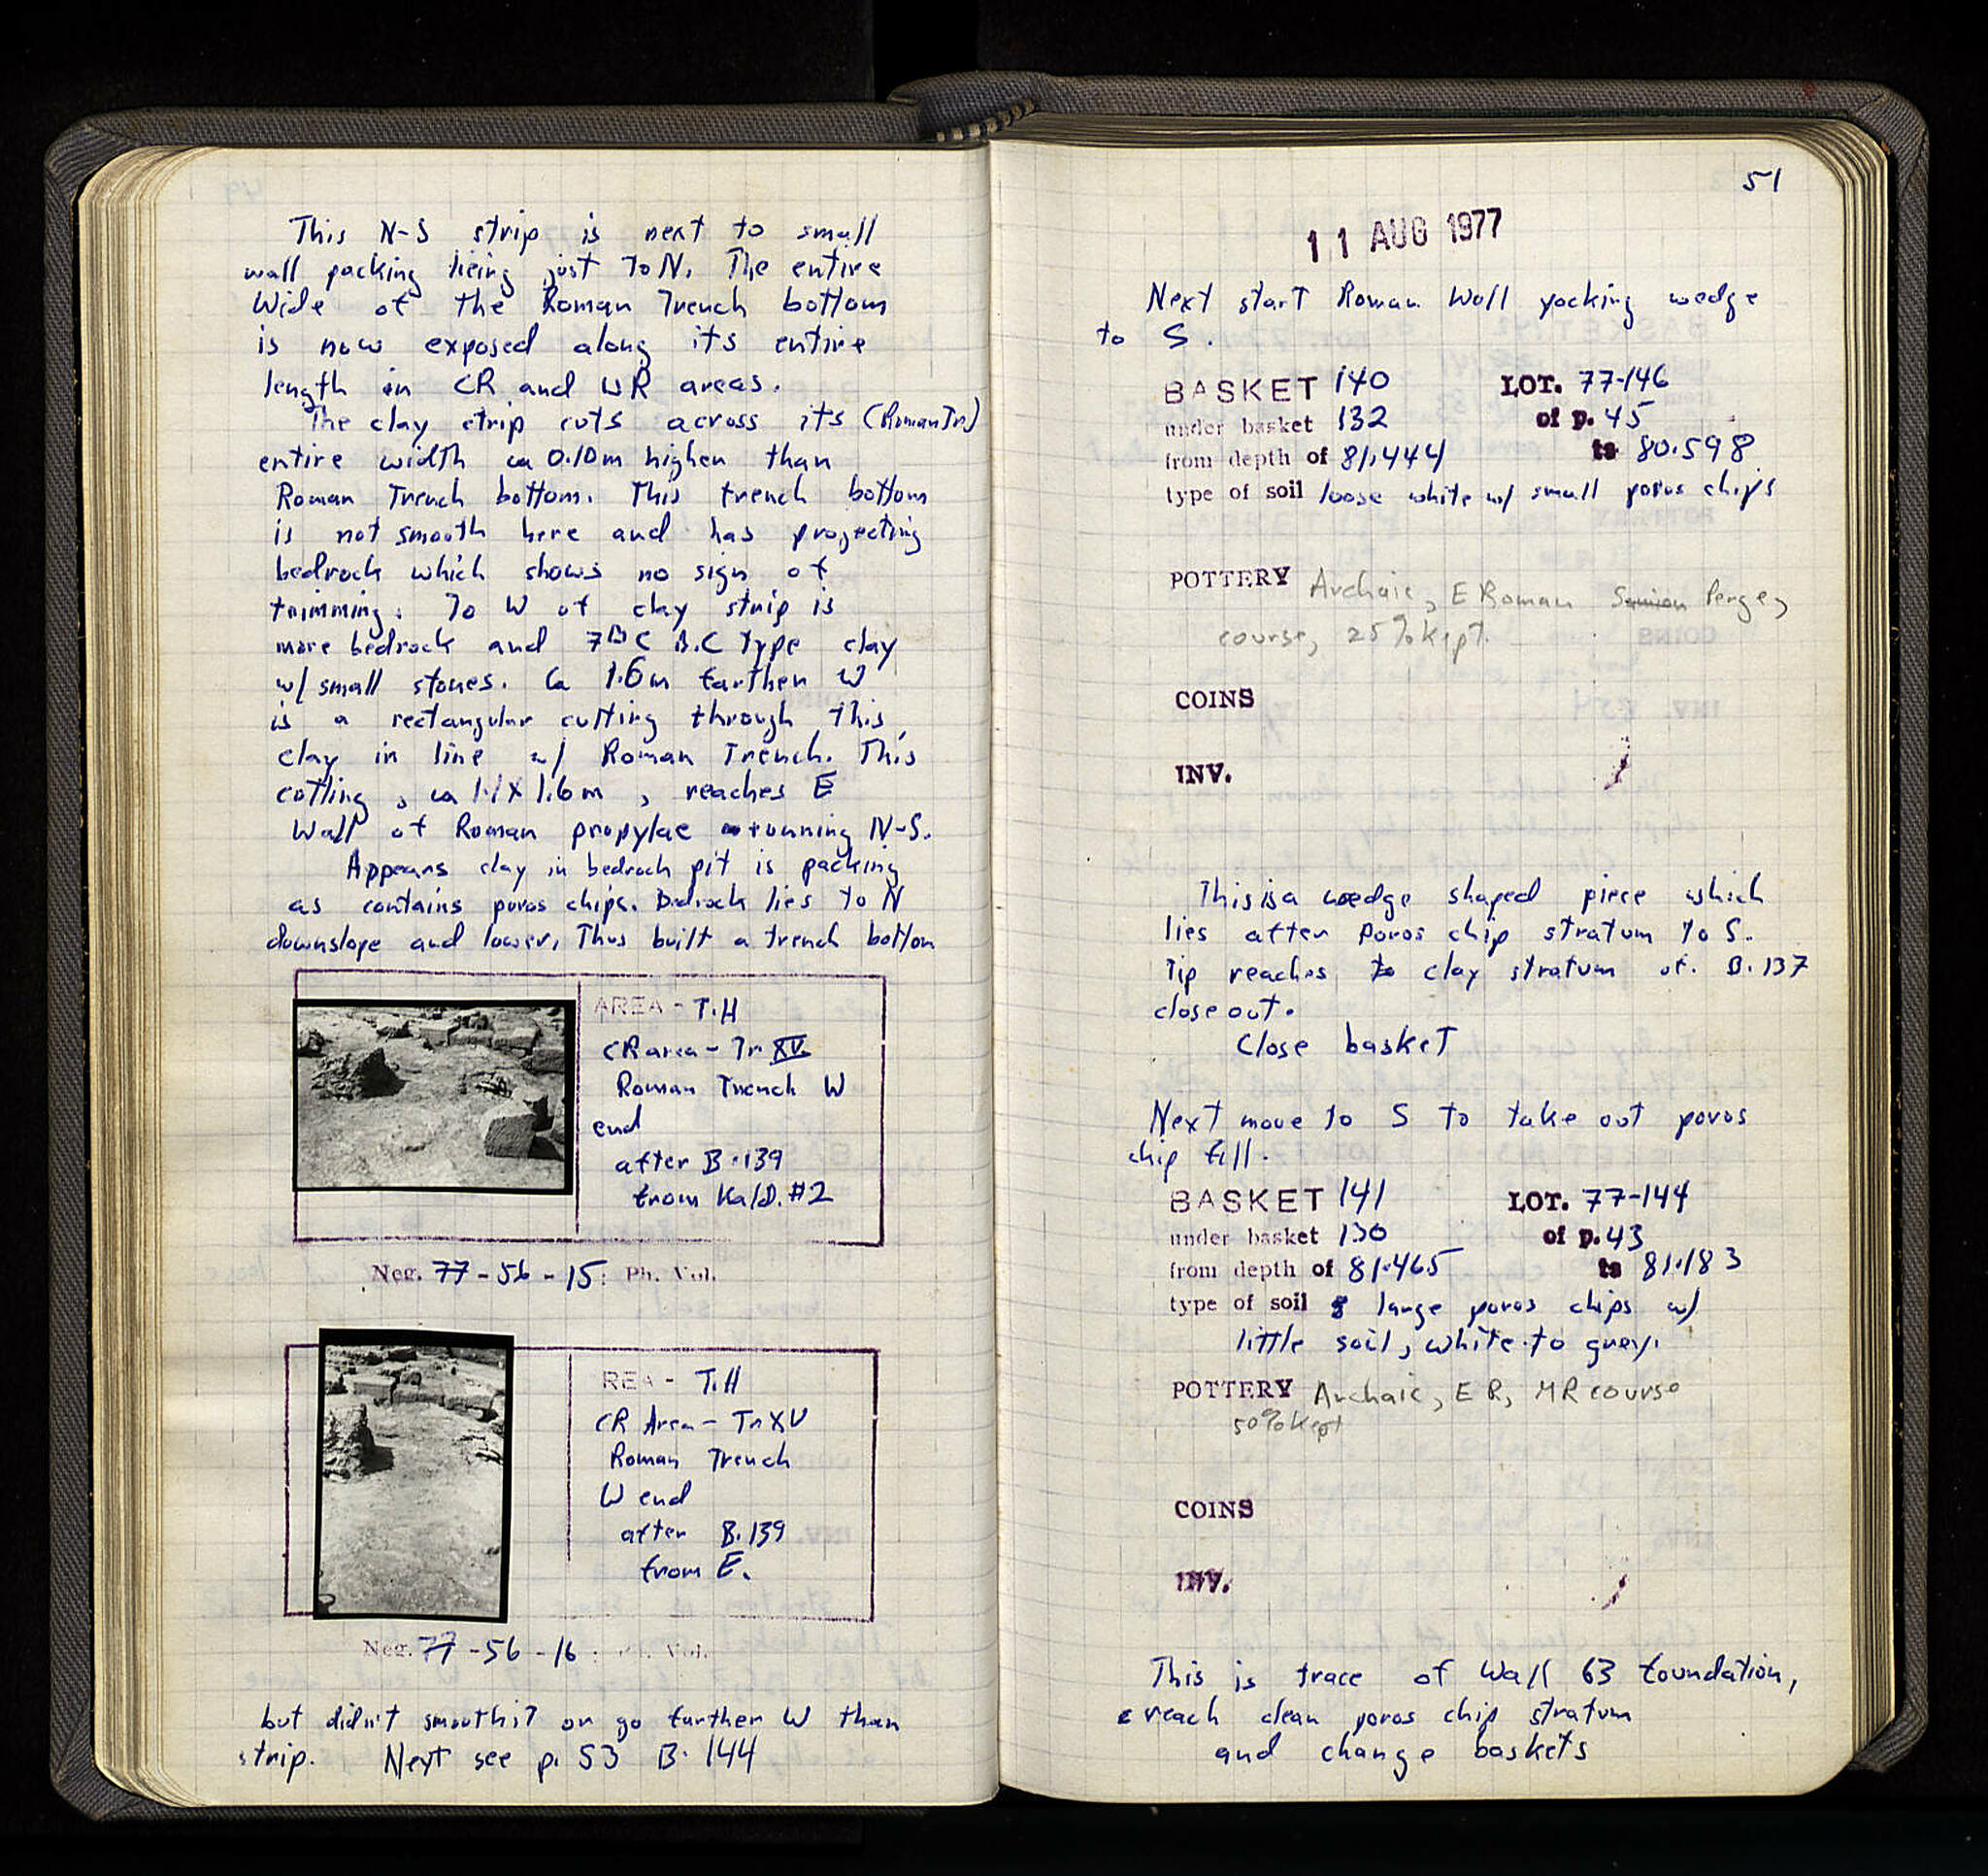 This N-S strip is next to small
wall packing lieing just to N. The entire
Wide of the Roman Trench bottom
is now exposed along its entire
length in CR and WR areas.
The clay strip cuts across its (Roman Tr)
entire width ca 0.10m higher than
Roman Trench bottom. This trench bottom
is not smooth here and has projecting
bedrock which shows no sign of
trimming. To W of clay strip is
more bedrock and B.C type clay
w/ small stones. Ca 1.6m farther W
is a rectangular cutting through this
clay in line w/ Roman Trench. This
cutting, ca 1.1 X 1.6m, reaches E
Wall of Roman propylae running N-S.
Appears clay in bedrock pit is packing
as contains poros chips. Bedrock lies to N
downslope and lower, Thus built a trench bottom
AREA - T.H
CR area - Tr XV
Roman Trench W
end
after B.139
from Kald. #2
Neg. 77-56-15; Ph. Vol.
REA - T.H
CR Area - Tr XV
Roman Trench
W end
after B.139
from E.
Neg. 77-56-16; Ph. Vol.
but didn't smooth it or go farther W than
strip. Next see p. 53 B. 144
51
11 AUG 1977
Next start Roman Wall packing wedge
to S.
BASKET 140 LOT. 77-146
under basket 132 of p. 45
from depth of 81.444 to 80.598
type of soil loose white w/ small poros chips
POTTERY Archaic, E Roman Perge,
course, 25% kept.
COINS
INV.
This is a wedge shaped piece which
lies after poros chip stratum to S.
Tip reaches to clay stratum of. B.137
close out.
Close basket
Next move to S to take out poros
chip fill.
BASKET 141 LOT. 77-144
under basket 130 of p. 43
from depth of 81.465 to 81.183
type of soil large poros chips w/
little soil, white to grey.
POTTERY Archaic, ER, MR course
50% kept
COINS
INV.
This is trace of Wall 63 foundation,
reach clean poros chip stratum
and change baskets